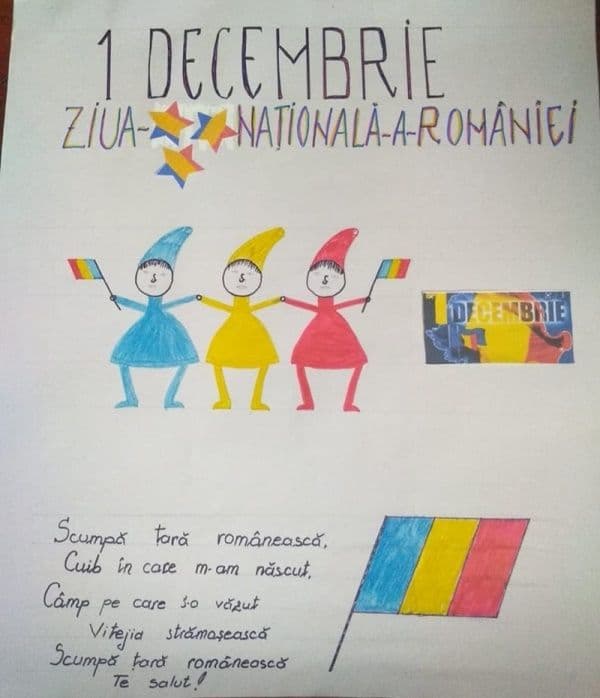 1 DECEMBRIE
ZIUA-NAȚIONALĂ-A-ROMÂNIEI
1 DECEMBRIE
Scumpă țară românească,
Cuib în care m-am născut,
Câmp pe care s-o văzut
Vitejia strămoșească
Scumpă țară românească
Te salut!